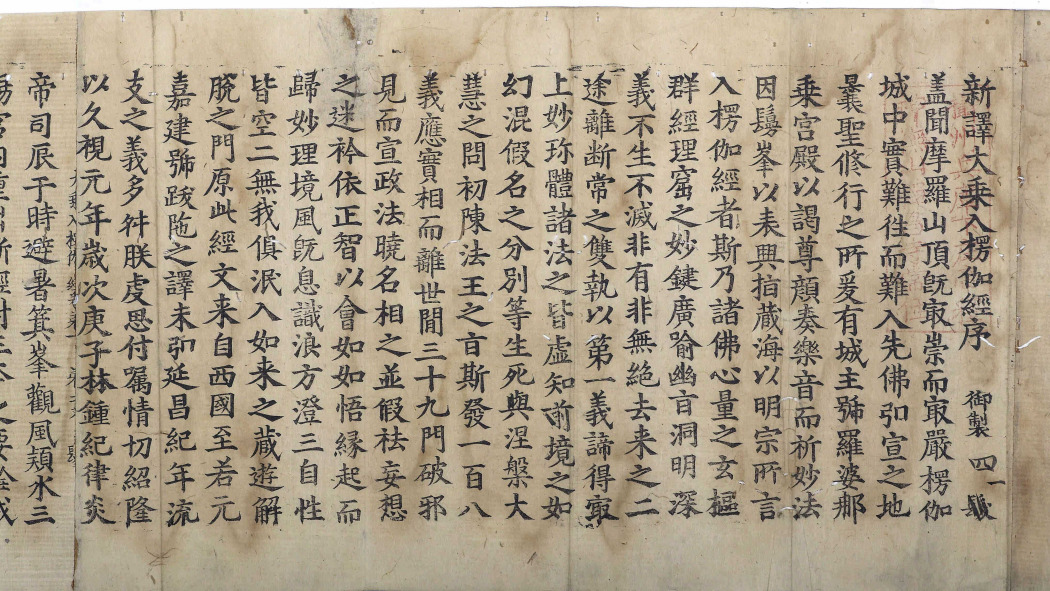 新譯大乗入楞伽經序 御製 四 一 㲲
盖聞摩羅山頂旣㝡崇而㝡嚴楞伽
城中實難徃而難入先佛弘宣之地
曩聖修行之所爰有城主號羅婆那
乗宮殿以謁尊顔奏樂音而祈妙法
因鬘峯以表興指蔵海以明宗所言
入楞伽經者斯乃諸佛心量之玄樞
群經理窟之妙鍵廣喻幽旨洞明深
義不生不滅非有非無絶去来之二
途離断常之雙執以第一義諦得㝡
上妙珎體諸法之皆虛知前境之如
幻混假名之分別等生死與涅槃大
慧之問初陳法王之旨斯發一百八
義應實相而離世閒三十九門破邪
見而宣政法曉名相之並假祛妄想
之迷衿依正智以會如如悟緣起而
歸妙理境風旣息識浪方澄三自性
皆空二無我俱泯入如来之蔵遊解
脫之門原此經文来自西國至若元
嘉建號跋陁之譯未弘延昌紀年流
支之義多舛朕虔思付囑情切紹隆
以久視元年歲次庚子林鍾紀律炎
帝司辰于時避暑箕峯觀風潁水三